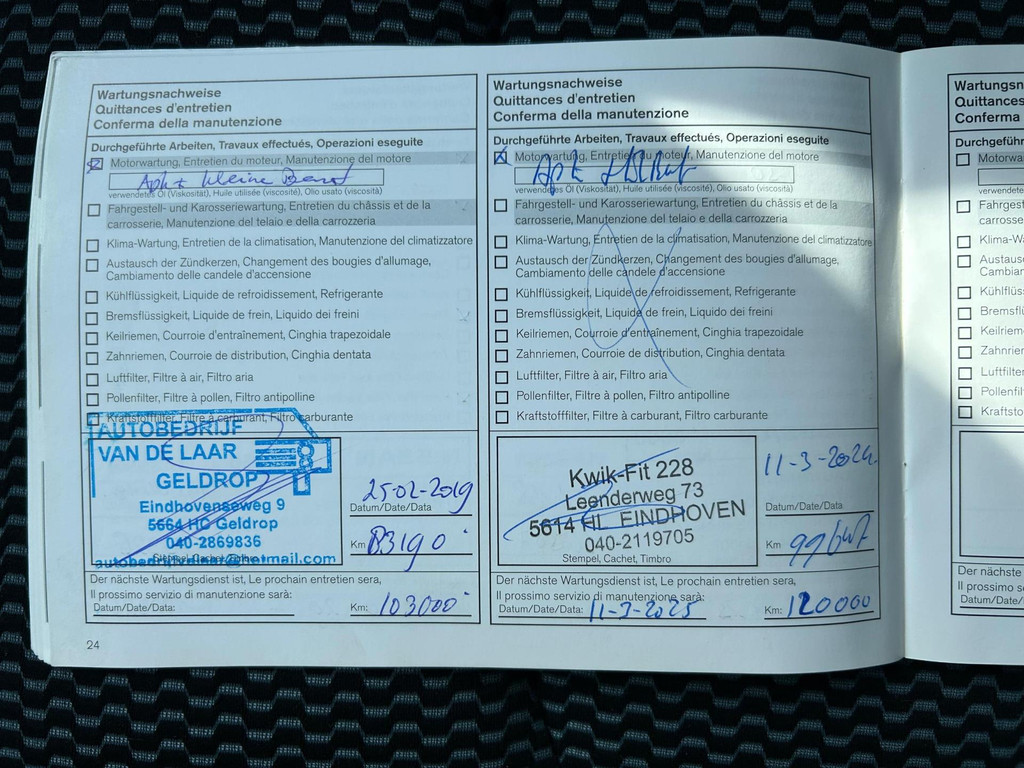 Wartungsnachweise
Quittances d'entretien
Conferma della manutenzione
Durchgeführte Arbeiten, Travaux effectués, Operazioni eseguite
Motorwartung, Entretien du moteur, Manutenzione del motore
Apk + kleine Beurt
verwendetes Öl (Viskosität), Huile utilisée (viscosité), Olio usato (viscosità)
Fahrgestell- und Karosseriewartung, Entretien du châssis et de la
carrosserie, Manutenzione del telaio e della carrozzeria
Klima-Wartung, Entretien de la climatisation, Manutenzione del climatizzatore
Austausch der Zündkerzen, Changement des bougies d'allumage,
Cambiamento delle candele d'accensione
Kühlflüssigkeit, Liquide de refroidissement, Refrigerante
Bremsflüssigkeit, Liquide de frein, Liquido dei freini
Keilriemen, Courroie d'entraînement, Cinghia trapezoidale
Zahnriemen, Courroie de distribution, Cinghia dentata
Luftfilter, Filtre à air, Filtro aria
Pollenfilter, Filtre à pollen, Filtro antipolline
Kraftstofffilter, Filtre à carburant, Filtro carburante
AUTOBEDRIJF
VAN DE LAAR
GELDROP
Eindhovenseweg 9
5664 HC Geldrop
040-2869836
Stempel, Cachet, Timbro
25-02-2019
Datum/Date/Data
Km 83190
Der nächste Wartungsdienst ist, Le prochain entretien sera,
Il prossimo servizio di manutenzione sarà:
Datum/Date/Data:
Km: 103000
24
Wartungsnachweise
Quittances d'entretien
Conferma della manutenzione
Durchgeführte Arbeiten, Travaux effectués, Operazioni eseguite
Motorwartung, Entretien du moteur, Manutenzione del motore
Apk
verwendetes Öl (Viskosität), Huile utilisée (viscosité), Olio usato (viscosità)
Fahrgestell- und Karosseriewartung, Entretien du châssis et de la
carrosserie, Manutenzione del telaio e della carrozzeria
Klima-Wartung, Entretien de la climatisation, Manutenzione del climatizzatore
Austausch der Zündkerzen, Changement des bougies d'allumage,
Cambiamento delle candele d'accensione
Kühlflüssigkeit, Liquide de refroidissement, Refrigerante
Bremsflüssigkeit, Liquide de frein, Liquido dei freini
Keilriemen, Courroie d'entraînement, Cinghia trapezoidale
Zahnriemen, Courroie de distribution, Cinghia dentata
Luftfilter, Filtre à air, Filtro aria
Pollenfilter, Filtre à pollen, Filtro antipolline
Kraftstofffilter, Filtre à carburant, Filtro carburante
Kwik-Fit 228
Leenderweg 73
5614 HL EINDHOVEN
040-2119705
Stempel, Cachet, Timbro
11-3-2024
Datum/Date/Data
Km
Der nächste Wartungsdienst ist, Le prochain entretien sera,
Il prossimo servizio di manutenzione sarà:
Datum/Date/Data: 11-3-2025
Km: 120000
Quittances
Conferma